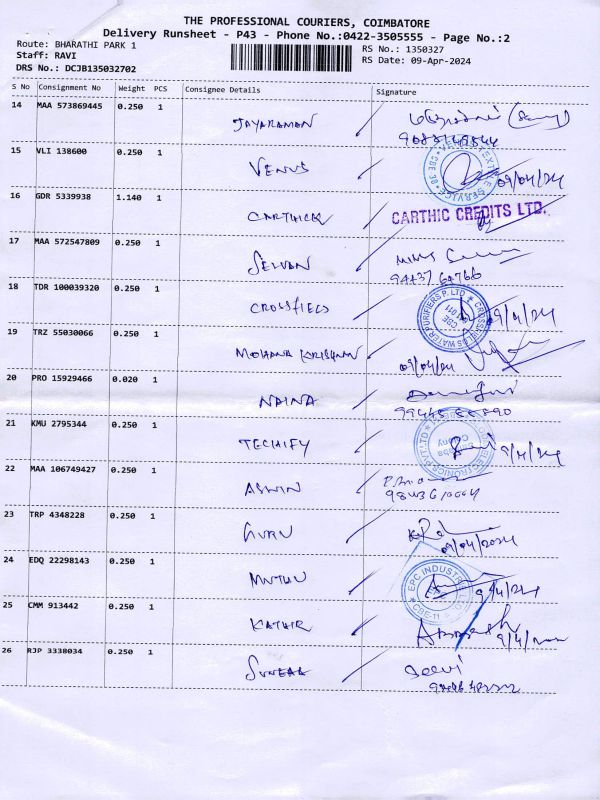 THE PROFESSIONAL COURIERS, COIMBATORE
Delivery Runsheet - P43 - Phone No.:0422-3505555 - Page No.:2
Route: BHARATHI PARK 1
RS No.: 1350327
Staff: RAVI
RS Date: 09-Apr-2024
DRS No.: DCJB135032702
S No Consignment No Weight PCS Consignee Details Signature
14 MAA 573869445 0.250 1
JAYARAMAN
15 VLI 138600 0.250 1
VENUS
09/04/24
16 GDR 5339938 1.140 1
CARTHICK CARTHIC CREDITS LTD.
17 MAA 572547809 0.250 1
SELVAN
94437 64766
18 TDR 100039320 0.250 1
CROSSFIELDS
CROSSFIELDS WATER PURIFIERS P. LTD
CBE
9/4/24
19 TRZ 55030066 0.250 1
MOHANA KRISHNAN 09/04/24
20 PRO 15929466 0.020 1
NAINA
21 KMU 2795344 0.250 1
TECHIFY
ELECTRONICS PVT LTD
9/4/24
22 MAA 106749427 0.250 1
ASWIN
23 TRP 4348228 0.250 1
GURU
09/04/2024
24 EDQ 22298143 0.250 1
MUTHU
EPC INDUSTRI
9/4/24
25 CMM 913442 0.250 1
KATHIR
26 RJP 3338034 0.250 1